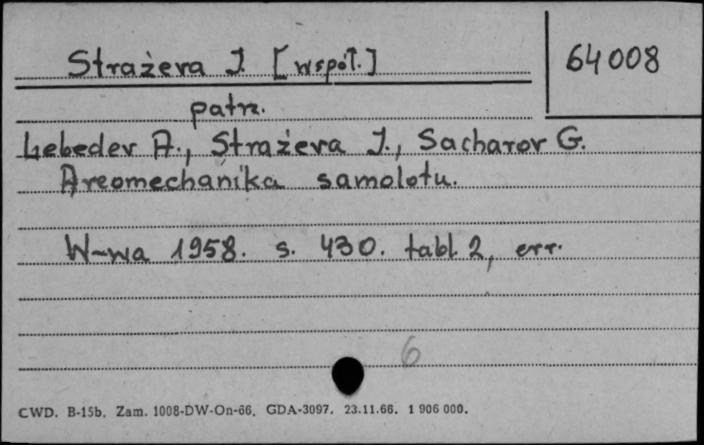 Strażeva J. [współ.]
64008
patrz.
Lebedev A., Strażeva J., Sacharov G.
Areomechanika samolotu.
W-wa 1958. s. 430. tabl. 2, err.
6
CWD. B-15b. Zam. 1008-DW-On-66. GDA-3097. 23.11.66. 1 906 000.